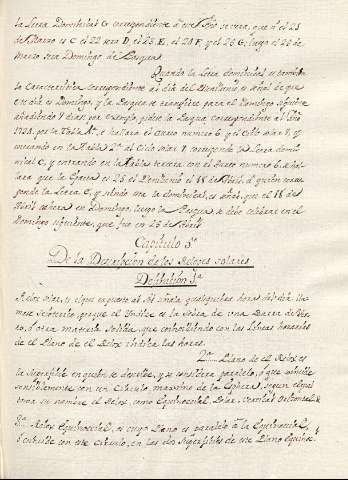 la Letra Dominical G correspondiente à este Año se vera, que à el 21
de Marzo es C el 22 sera D, el 23 E, el 24 F, y el 25 G; luego el 25 de
Marzo sera Domingo de Pasqua.
Quando la Letra dominical, es tambien
la Caracteristica correspondiente al dia del Plenilunio, es señal de que
ese dia es Domingo, y la Pasqua se transfiere para el Domingo siguiente
añadiendo 7 dias por exemplo, pidese la Pasqua correspondiente al Año
por la Tabla 1ª, se hallara el Aureo numero 6, y el Ciclo solar
entrando en la Tabla 2ª al Ciclo solar corresponde la Letra domi-
nical C, y entrando en la Tabla tercera con el Aureo numero 6, se ha-
llara que la Epacta es 25 el Plenilunio el 18 de Abril, à quien corres-
ponde la Letra C, y siendo esta la dominical, es señal, que el 18 de
Abril en Domingo, luego la Pasqua, se debe celebrar en el
Domingo siguiente, que fue en 25 de Abril
Capitulo 3º
De la Descripcion de los Reloxes solares
Definicion 1ª
Relox solar, es el que expuesto al Sol señala qualesquiera horas del dia lla-
mase Sciaterico porque el Indice es la Sombra de una Barra de hier-
ro, ò otra materia Solida, que coincidiendo con las Lineas horarias
de el Plano de el Relox indica las horas.
2ª Plano de el Relox es
la Superficie en quien se describe, y se considera paralelo, ò que coincide
sensiblemente con un Circulo maximo de la Esfera, segun el qual
toma su nombre el Relox, como Equinoccial, Polar, Vertical Orizontal &
3ª Relox Equinoccial, es cuyo Plano es paralelo à la Equinoccial,
ò coincide con este Circulo, en las dos Superficies de este Plano Equinoc-